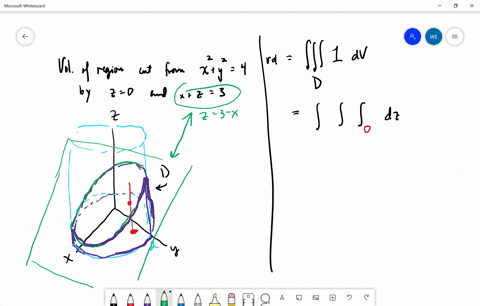 Microsoft Whiteboard
WE
Vol. of region cut from x² + y² = 4
by z=0 and x+z=3
z=3-x
z
D
x
y
vol = ∭ 1 dV
D
= ∫ ∫ ∫ dz
0